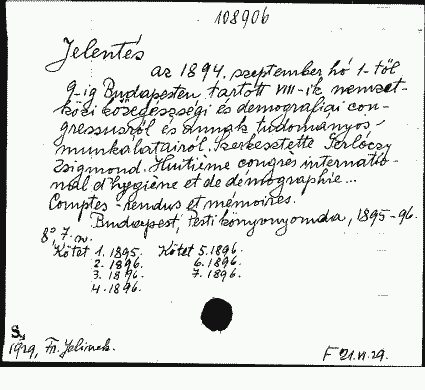 108906
Jelentés
az 1894. szeptember hó 1-től
9-ig Budapesten tartott VIII-ik nemzet-
közi közegészségi és demografiai con-
gressusról és annak tudományos
munkálatairól. Szerkesztette Gerlóczy
Zsigmond. Huitième congrès internatio-
nal d'hygiène et de démographie...
Comptes-rendus et mémoires.
Budapest, Pesti könyvnyomda, 1895-96.
8°, 7.
Kötet 1.1895. Kötet 5.1896.
2.1896. 6.1896.
3.1896. 7.1896.
4.1896.
S.
1929, Fr. Jelinek.
F 21.VI.29.